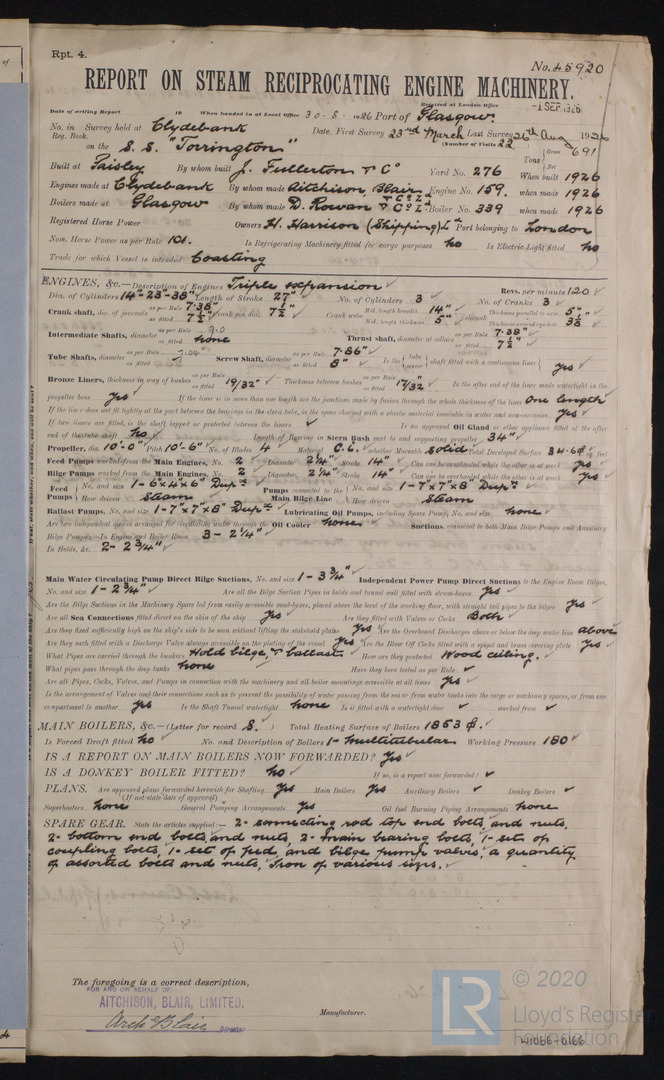 Rpt. 4.
No. 45920
REPORT ON STEAM RECIPROCATING ENGINE MACHINERY.
Received at London Office
-1 SEP 1926
Date of writing Report 19 When handed in at Local Office 30-8-1926 Port of Glasgow.
No. in Survey held at Clydebank Date, First Survey 23rd March Last Survey 26th Aug 1926
Reg. Book. (Number of Visits 22)
on the S.S. "Torrington" Tons Gross 691 Net
Built at Paisley By whom built J. Fullerton & Co Yard No. 276 When built 1926
Engines made at Clydebank By whom made Aitchison Blair Ld Engine No. 159. when made 1926
Boilers made at Glasgow By whom made D. Rowan & Co Ld Boiler No. 339 when made 1926
Registered Horse Power Owners H. Harrison (Shipping) Ld Port belonging to London
Nom. Horse Power as per Rule 101. Is Refrigerating Machinery fitted for cargo purposes No Is Electric Light fitted No
Trade for which Vessel is intended Coasting
ENGINES, &c.—Description of Engines Triple expansion Revs. per minute 120
Dia. of Cylinders 14"-23"-38" Length of Stroke 27" No. of Cylinders 3 No. of Cranks 3
Crank shaft, dia. of journals as per Rule 7.38" as fitted 7½" Crank pin dia. 7½" Crank webs Mid. length breadth 14" Mid. length thickness 5" Thickness parallel to axis 5" Thickness around eyehole 3⅜
Intermediate Shafts, diameter as per Rule 7.0 as fitted none Thrust shaft, diameter at collars as per Rule 7.38" as fitted 7½"
Tube Shafts, diameter as per Rule 7.04" as fitted Screw Shaft, diameter as per Rule 7.86" as fitted 8" Is the tube screw shaft fitted with a continuous liner Yes
Bronze Liners, thickness in way of bushes as per Rule as fitted 19/32" Thickness between bushes as per Rule as fitted 17/32" Is the after end of the liner made watertight in the
propeller boss Yes If the liner is in more than one length are the junctions made by fusion through the whole thickness of the liner One length
If the liner does not fit tightly at the part between the bearings in the stern tube, is the space charged with a plastic material insoluble in water and non-corrosive Yes
If two liners are fitted, is the shaft lapped or protected between the liners ✓ Is an approved Oil Gland or other appliance fitted at the after
end of the tube shaft No Length of Bearing in Stern Bush next to and supporting propeller 34"
Propeller, dia. 10'-0" Pitch 10'-6" No. of Blades 4 Material C.I. whether Moveable Solid Total Developed Surface 34.6 sq. feet
Feed Pumps worked from the Main Engines, No. 2 Diameter 2¼" Stroke 14" Can one be overhauled while the other is at work Yes
Bilge Pumps worked from the Main Engines, No. 2 Diameter 2¼" Stroke 14" Can one be overhauled while the other is at work Yes
Feed Pumps No. and size 1-6"x4"x6" Dupx How driven Steam Pumps connected to the Main Bilge Line No. and size 1-7"x7"x8" Dupx How driven Steam
Ballast Pumps, No. and size 1-7"x7"x8" Dupx Lubricating Oil Pumps, including Spare Pump, No. and size none
Are two independent means arranged for circulating water through the Oil Cooler none Suctions, connected to both Main Bilge Pumps and Auxiliary
Bilge Pumps;—In Engine and Boiler Room 3-2¼"
In Holds, &c. 2-2¾"
Main Water Circulating Pump Direct Bilge Suctions, No. and size 1-3¾" Independent Power Pump Direct Suctions to the Engine Room Bilges,
No. and size 1-2¾" Are all the Bilge Suction Pipes in holds and tunnel well fitted with strum-boxes Yes
Are the Bilge Suctions in the Machinery Space led from easily accessible mud-boxes, placed above the level of the working floor, with straight tail pipes to the bilges Yes
Are all Sea Connections fitted direct on the skin of the ship Yes Are they fitted with Valves or Cocks Both
Are they fixed sufficiently high on the ship's side to be seen without lifting the stokehold plates Yes Are the Overboard Discharges above or below the deep water line above
Are they each fitted with a Discharge Valve always accessible on the plating of the vessel Yes Are the Blow Off Cocks fitted with a spigot and brass covering plate Yes
What Pipes are carried through the bunkers Hold bilge & ballast. How are they protected Wood ceiling.
What pipes pass through the deep tanks none Have they been tested as per Rule ✓
Are all Pipes, Cocks, Valves, and Pumps in connection with the machinery and all boiler mountings accessible at all times Yes
Is the arrangement of Valves and their connections such as to prevent the possibility of water passing from the sea or from water tanks into the cargo or machinery spaces, or from one
compartment to another Yes Is the Shaft Tunnel watertight none Is it fitted with a watertight door ✓ worked from ✓
MAIN BOILERS, &c.—(Letter for record S. ) Total Heating Surface of Boilers 1853
Is Forced Draft fitted No No. and Description of Boilers 1-Multitubular Working Pressure 180
IS A REPORT ON MAIN BOILERS NOW FORWARDED? Yes
IS A DONKEY BOILER FITTED? No If so, is a report now forwarded? ✓
PLANS. Are approved plans forwarded herewith for Shafting Yes Main Boilers Yes Auxiliary Boilers ✓ Donkey Boilers ✓
(If not state date of approval)
Superheaters none General Pumping Arrangements Yes Oil fuel Burning Piping Arrangements none
SPARE GEAR. State the articles supplied:— 2-connecting rod top end bolts and nuts,
2-bottom end bolts and nuts, 2-main bearing bolts, 1-set of
coupling bolts, 1-set of feed and bilge pump valves, a quantity
of assorted bolts and nuts, Iron of various sizes.
The foregoing is a correct description,
FOR AND ON BEHALF OF
AITCHISON, BLAIR, LIMITED.
Archd Blair Director
Manufacturer.
LR © 2020
Lloyd's Register
Foundation
W1066-0166